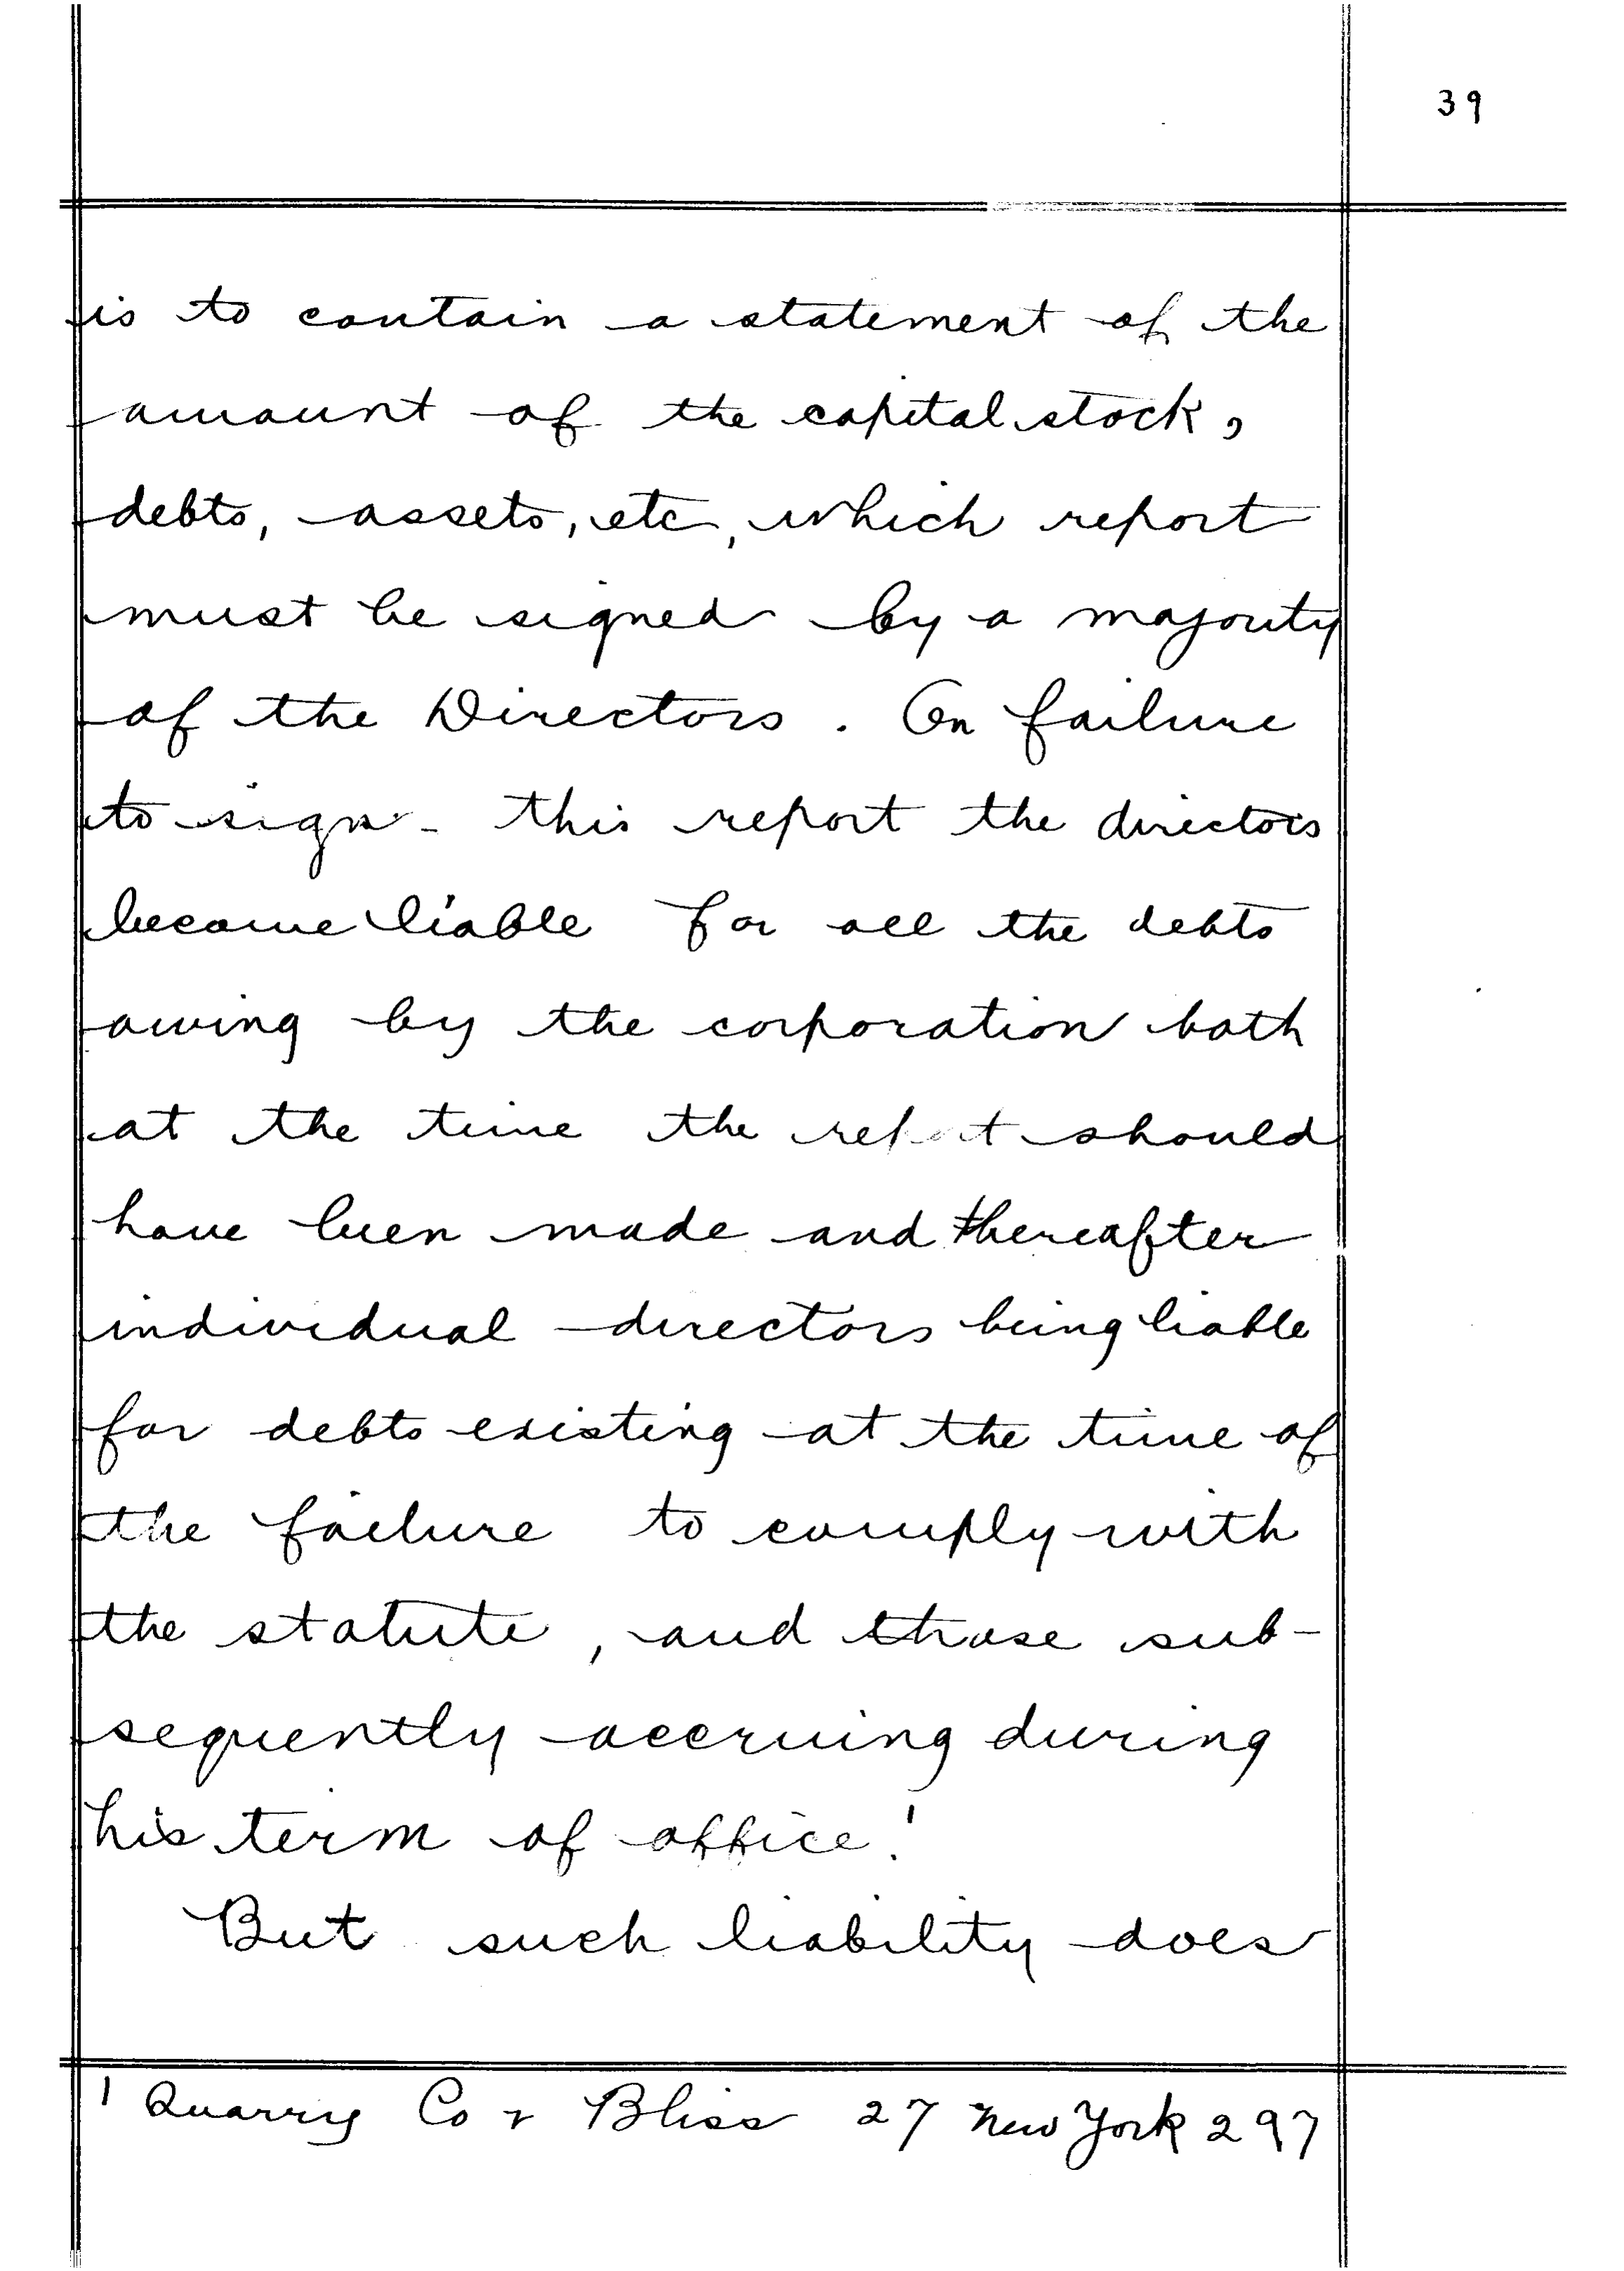 39
is to contain a statement of the
amount of the capital stock,
debts, assets, etc, which report
must be signed by a majority
of the Directors. On failure
to sign - this report the directors
become liable for all the debts
owing by the corporation both
at the time the report should
have been made and thereafter
individual directors being liable
for debts existing at the time of
the failure to comply with
the statute, and those sub-
sequently accruing during
his term of office.¹
But such liability does
¹ Quarry Co v Bliss 27 New York 297